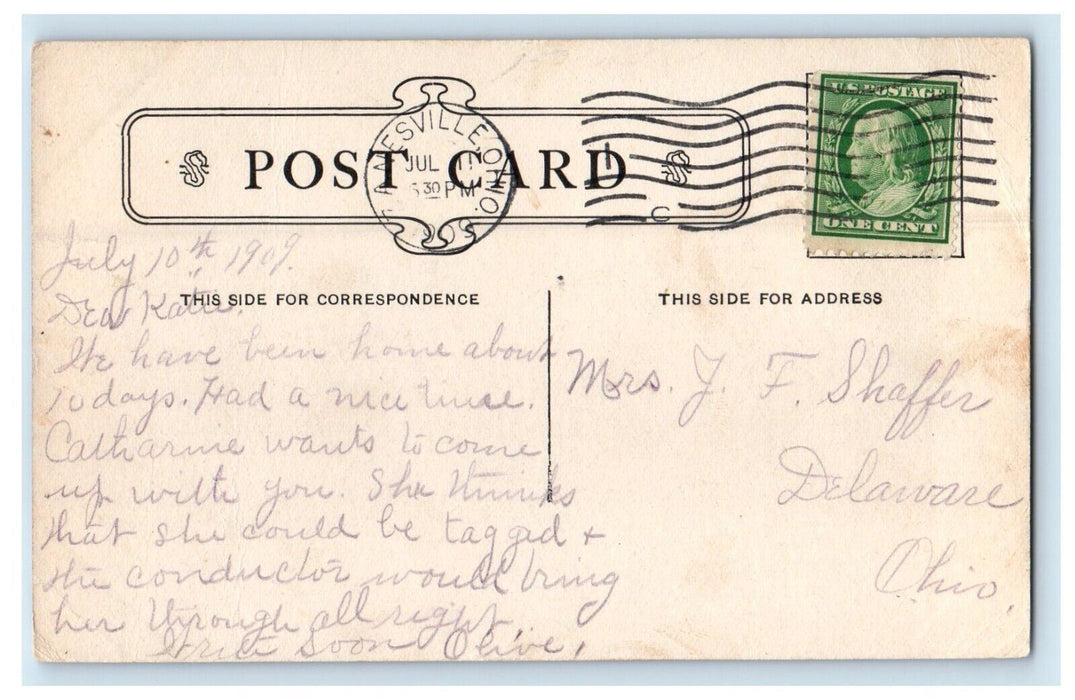 POST CARD
ESVILLE, OHIO.
JUL
30 PM
C
U.S. POSTAGE
ONE CENT
THIS SIDE FOR CORRESPONDENCE
THIS SIDE FOR ADDRESS
July 10th 1909.
Dear Katie.
We have been home about
10 days. Had a nice time.
Catharine wants to come
up with you. She thinks
that she could be tagged +
the conductor would bring
her through all right.
Write Soon Olive.
Mrs. J. F. Shaffer
Delaware
Ohio.